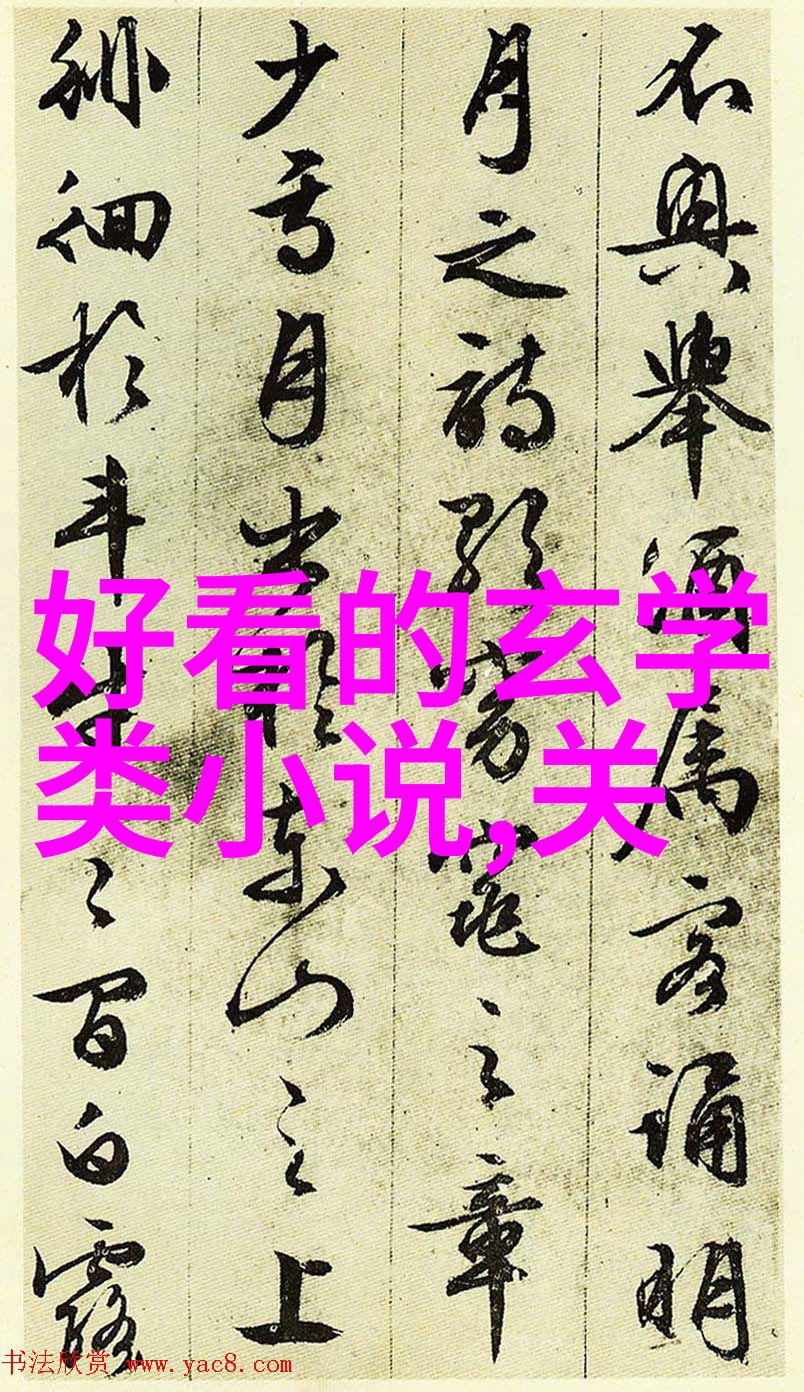 不興舉酒屬客誦明
月之詩歌窈窕之章
少焉月出於東山之上
徘徊於斗牛之間白露
好看的玄学
类小说,关
书法欣赏 www.yac8.com